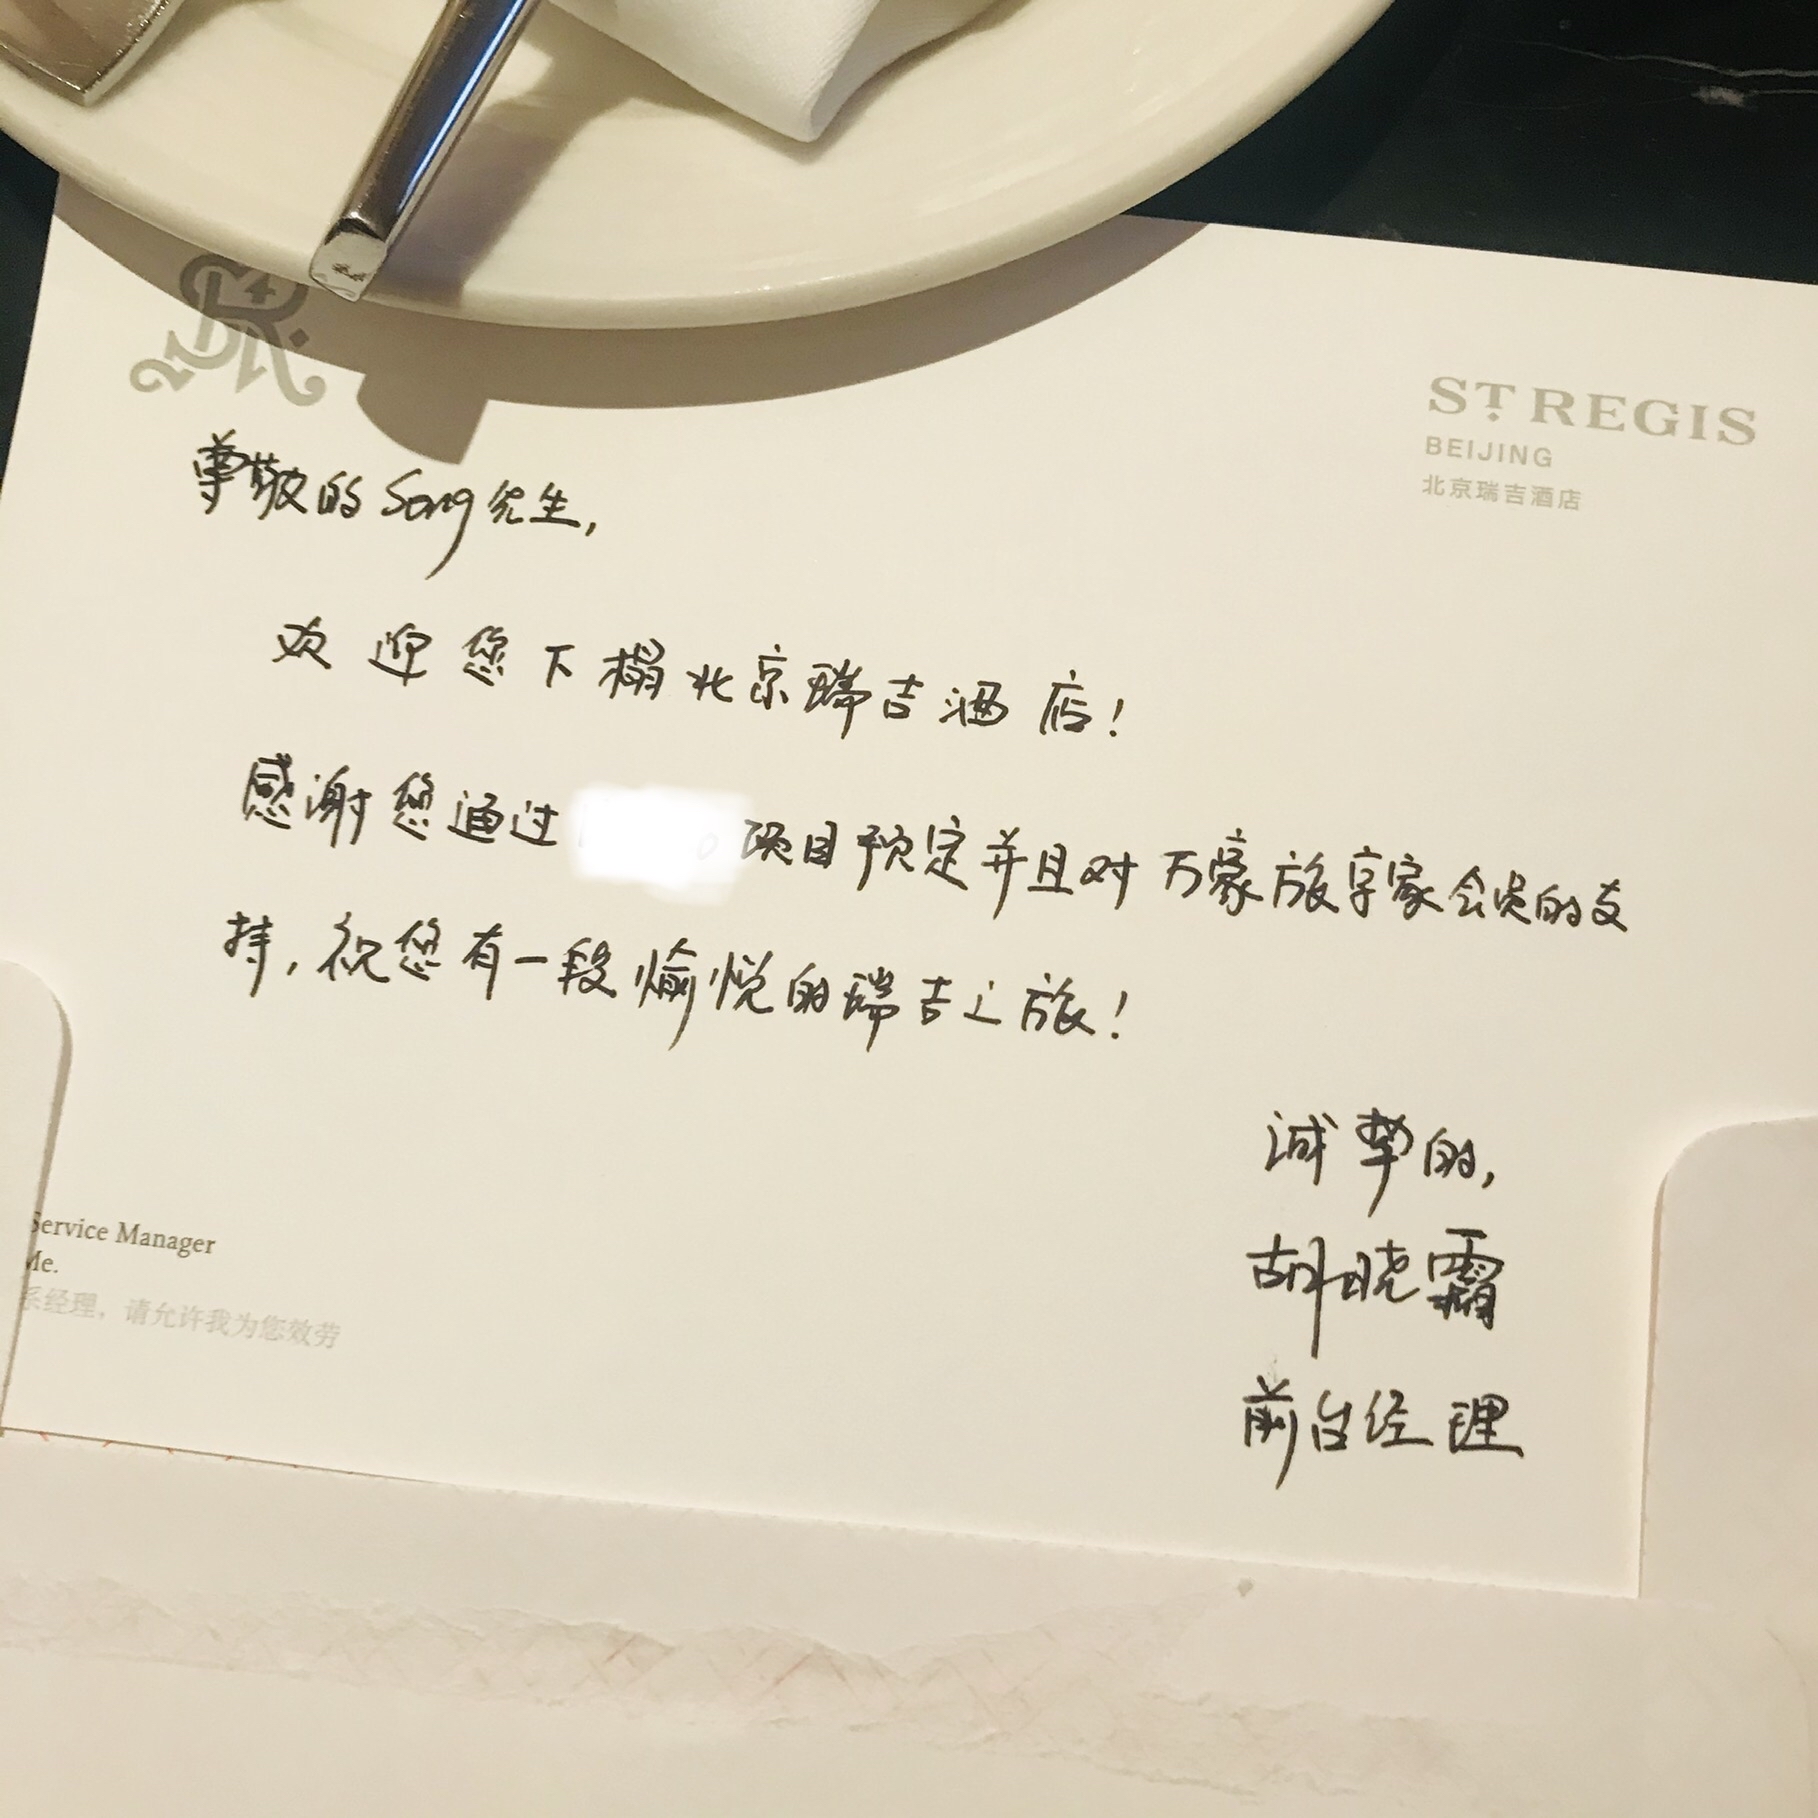 ST REGIS
BEIJING
北京瑞吉酒店
尊敬的Song先生,
欢迎您下榻北京瑞吉酒店!
感谢您通过 项目预定并且对万豪旅享家会员的支
持,祝您有一段愉悦的瑞吉之旅!
诚挚的,
胡晓霜
前台经理
Service Manager
Me.
系经理，请允许我为您效劳